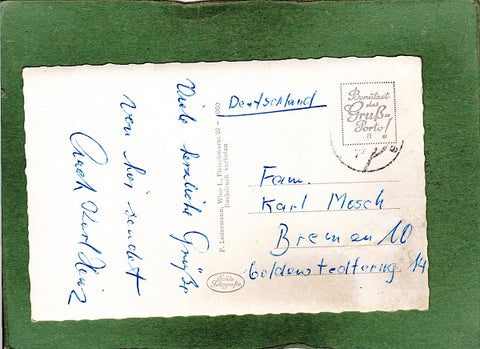 Viele herzliche Grüße
von hier sendet
Euch Karl Heinz
P. Ledermann, Wien I., Fleischmarkt 20 - 1960
Nachdruck verboten
Echte
Fotografie
Deutschland
Benützet
das
Gruß-
Porto!
Fam.
Karl Mosch
Bremen 10
Goldenstedterring 14